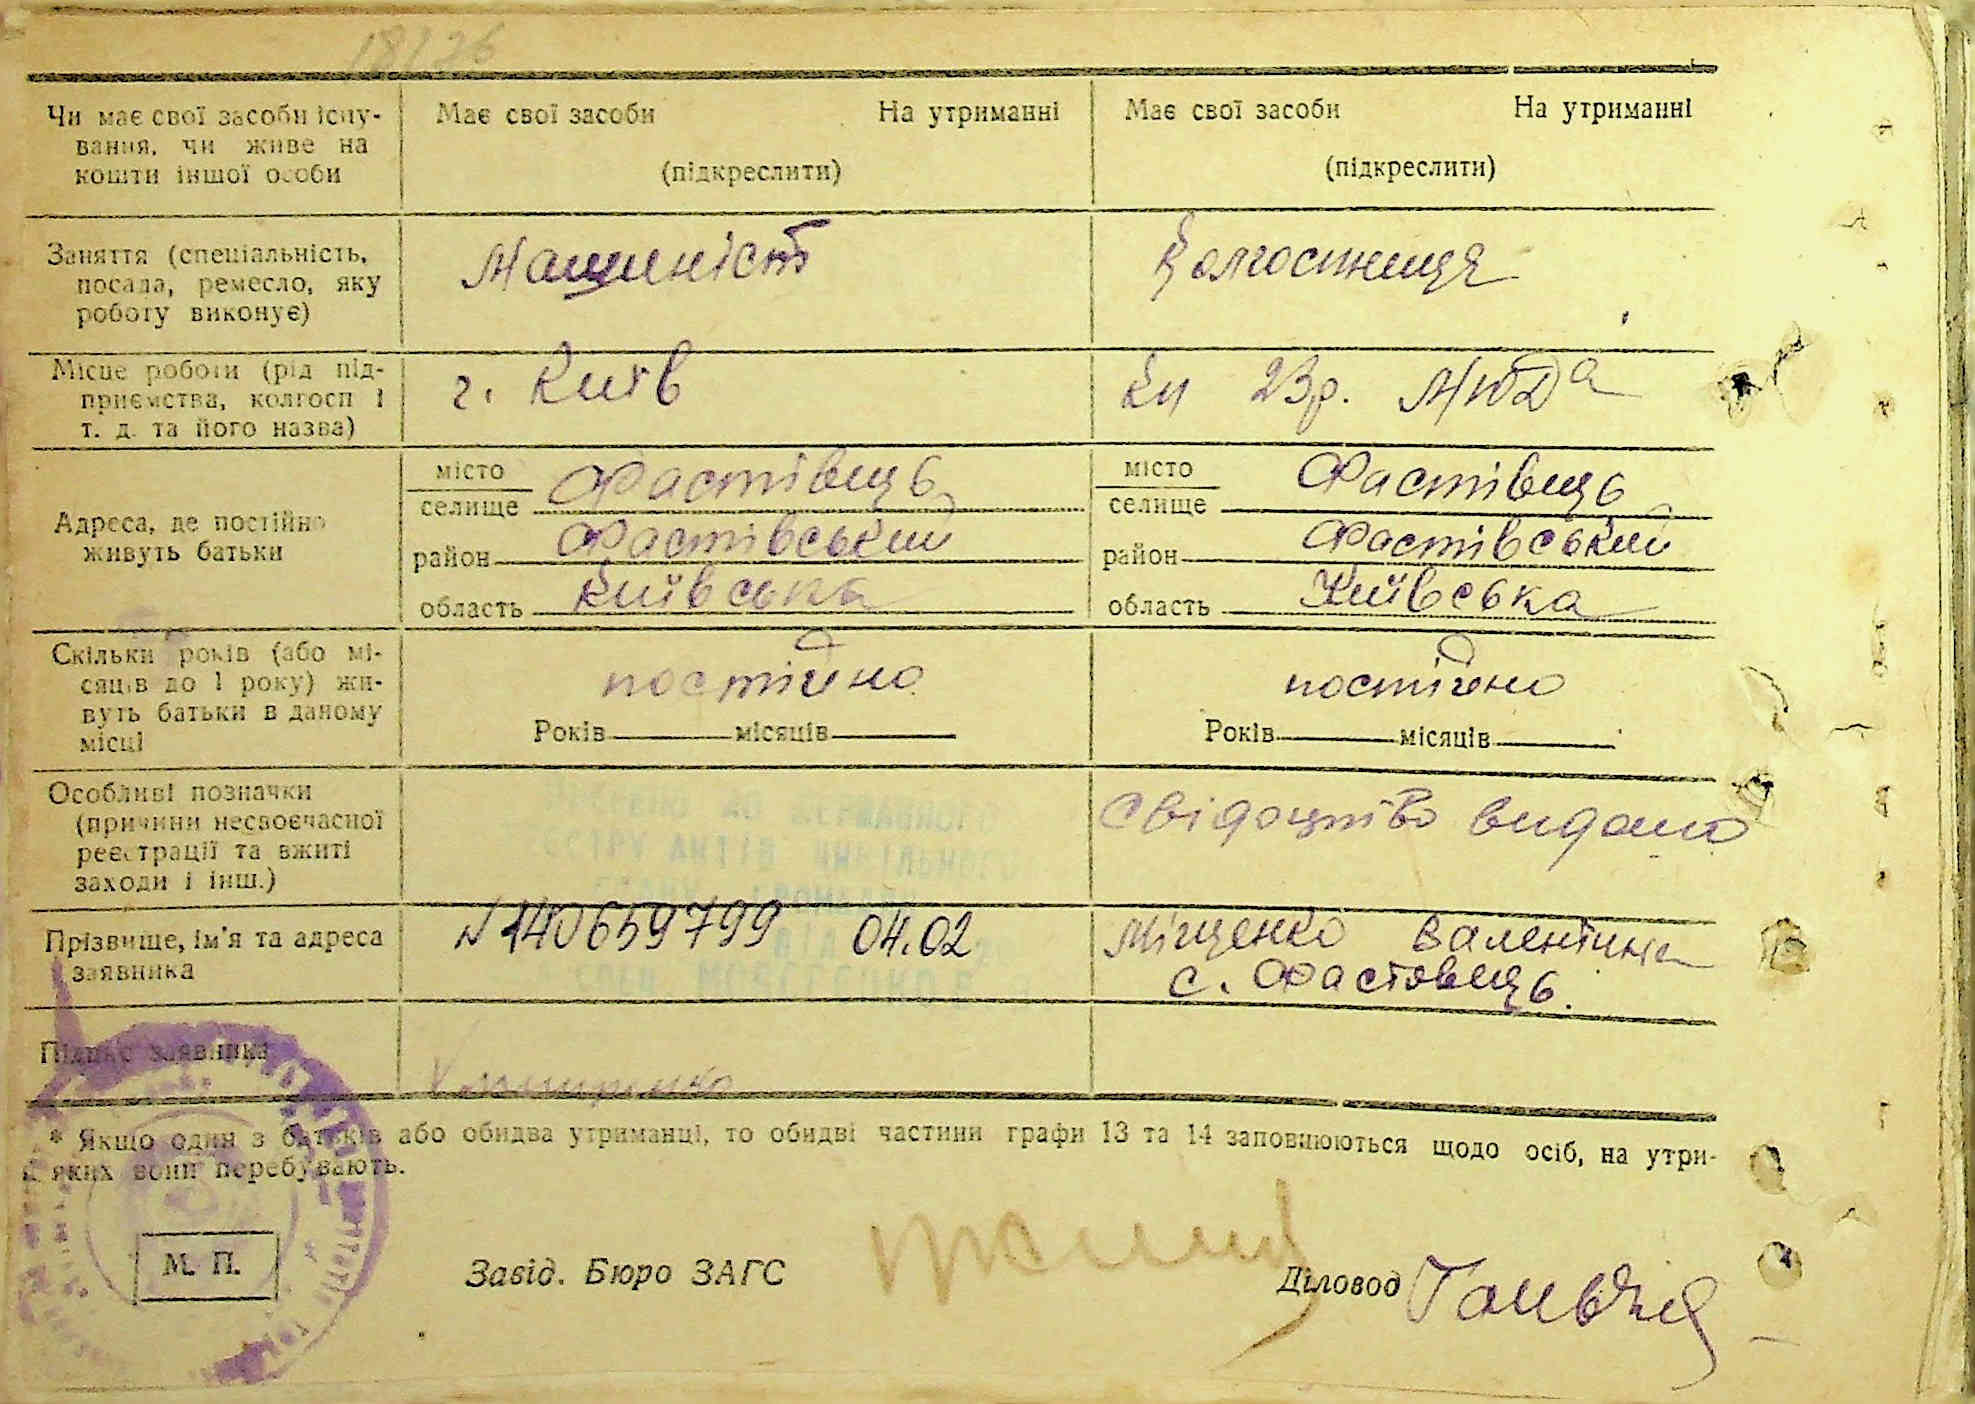 18/26
Чи має свої засоби існу- Має свої засоби На утриманні Має свої засоби На утриманні
вання, чи живе на
кошти іншої особи (підкреслити) (підкреслити)
Заняття (спеціальність, Машиніст Колгоспниця
посада, ремесло, яку
роботу виконує)
Місце роботи (рід під- г. Київ Кп 23р. МЮДа
приємства, колгосп і
т. д. та його назва)
місто Фастівець місто Фастівець
селище селище
Адреса, де постійно
живуть батьки
район Фастівський район Фастівський
область Київська область Київська
Скільки років (або мі- постійно постійно
сяців до 1 року) жи-
вуть батьки в даному Років місяців Років місяців
місці
Особливі позначки Свідоцтво видано
(причини несвоєчасної
реєстрації та вжиті
заходи і інш.)
ДО ДЕРЖАВНОГО
РЕЄСТРУ АКТІВ ЦИВІЛЬНОГО
СТАНУ ГРОМАДЯН
Прізвище, ім'я та адреса N 140659799 04.02 Міщенко Валентина
заявника с. Фастовець.
Підпис заявника
* Якщо один з батьків або обидва утриманці, то обидві частини графи 13 та 14 заповнюються щодо осіб, на утри-
яких вони перебувають.
М. П. Завід. Бюро ЗАГС Діловод